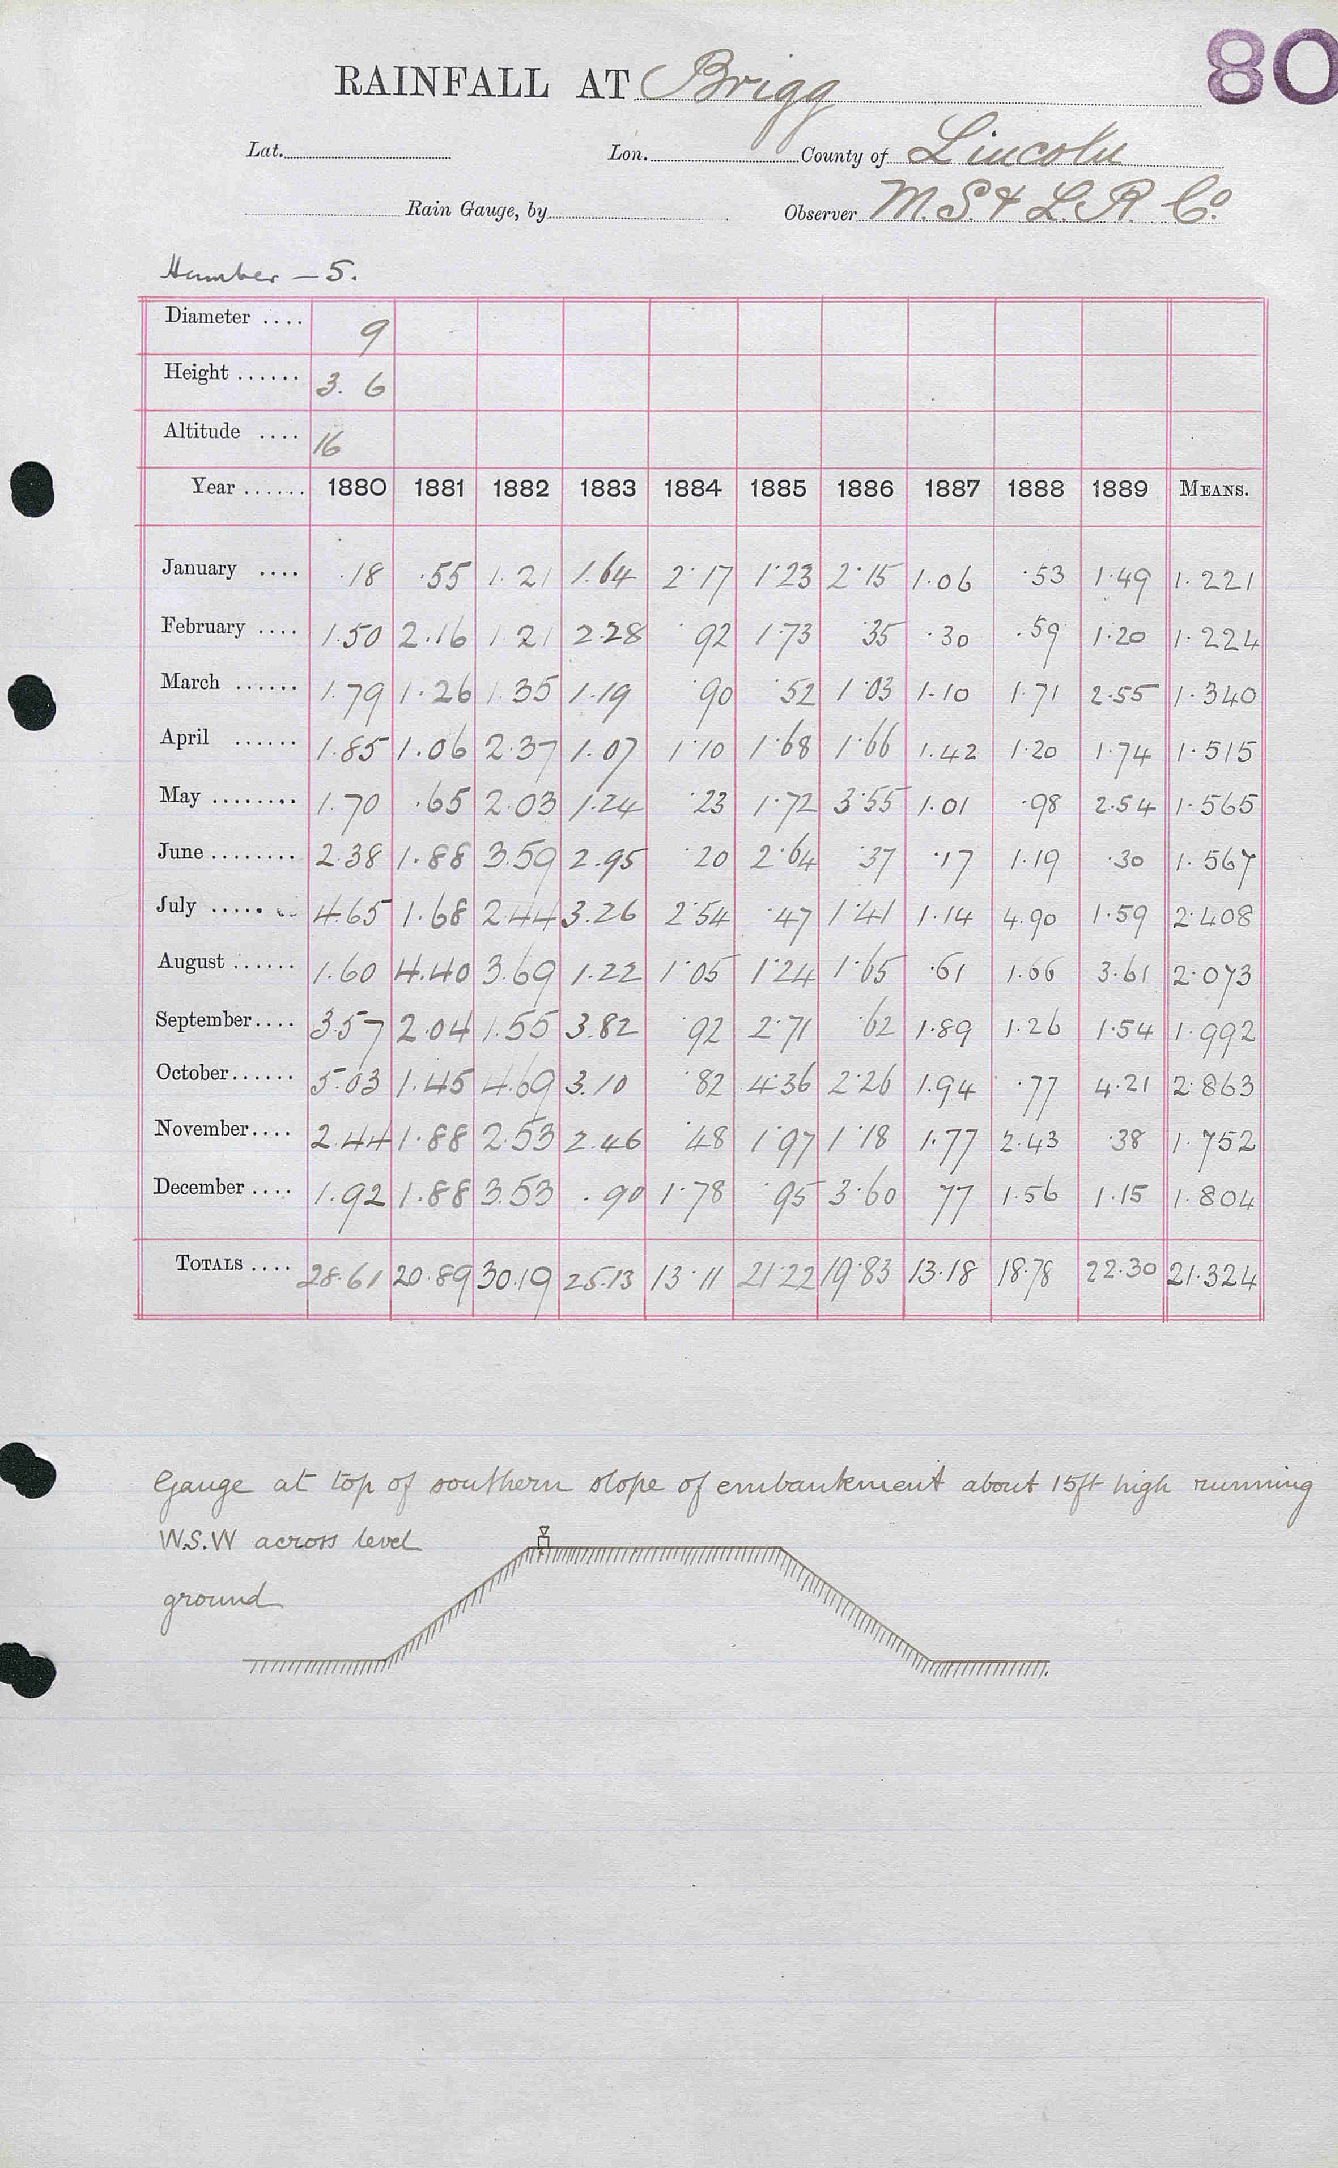 80
RAINFALL AT Brigg
Lat. Lon. County of Lincoln
Rain Gauge, by Observer M.S & L.R. Co.
Humber — 5.
Diameter .... 9
Height ...... 3. 6
Altitude .... 16
Year ...... 1880 1881 1882 1883 1884 1885 1886 1887 1888 1889 MEANS.
January .... .18 .55 1.21 1.64 2.17 1.23 2.15 1.06 .53 1.49 1.221
February .... 1.50 2.16 1.21 2.28 .92 1.73 .35 .30 .59 1.20 1.224
March ...... 1.79 1.26 1.35 1.19 .90 .52 1.03 1.10 1.71 2.55 1.340
April ...... 1.85 1.06 2.37 1.07 1.10 1.68 1.66 1.42 1.20 1.74 1.515
May ........ 1.70 .65 2.03 1.24 .23 1.72 3.55 1.01 .98 2.54 1.565
June ........ 2.38 1.88 3.59 2.95 .20 2.64 .37 .17 1.19 .30 1.567
July ..... 4.65 1.68 2.44 3.26 2.54 .47 1.41 1.14 4.90 1.59 2.408
August ...... 1.60 4.40 3.69 1.22 1.05 1.24 1.65 .61 1.66 3.61 2.073
September.... 3.57 2.04 1.55 3.82 .92 2.71 .62 1.89 1.26 1.54 1.992
October...... 5.03 1.45 4.69 3.10 .82 4.36 2.26 1.94 .77 4.21 2.863
November.... 2.44 1.88 2.53 2.46 .48 1.97 1.18 1.77 2.43 .38 1.752
December .... 1.92 1.88 3.53 .90 1.78 .95 3.60 77 1.56 1.15 1.804
TOTALS .... 28.61 20.89 30.19 25.13 13.11 21.22 19.83 13.18 18.78 22.30 21.324
Gauge at top of southern slope of embankment about 15ft high running
W.S.W across level
ground